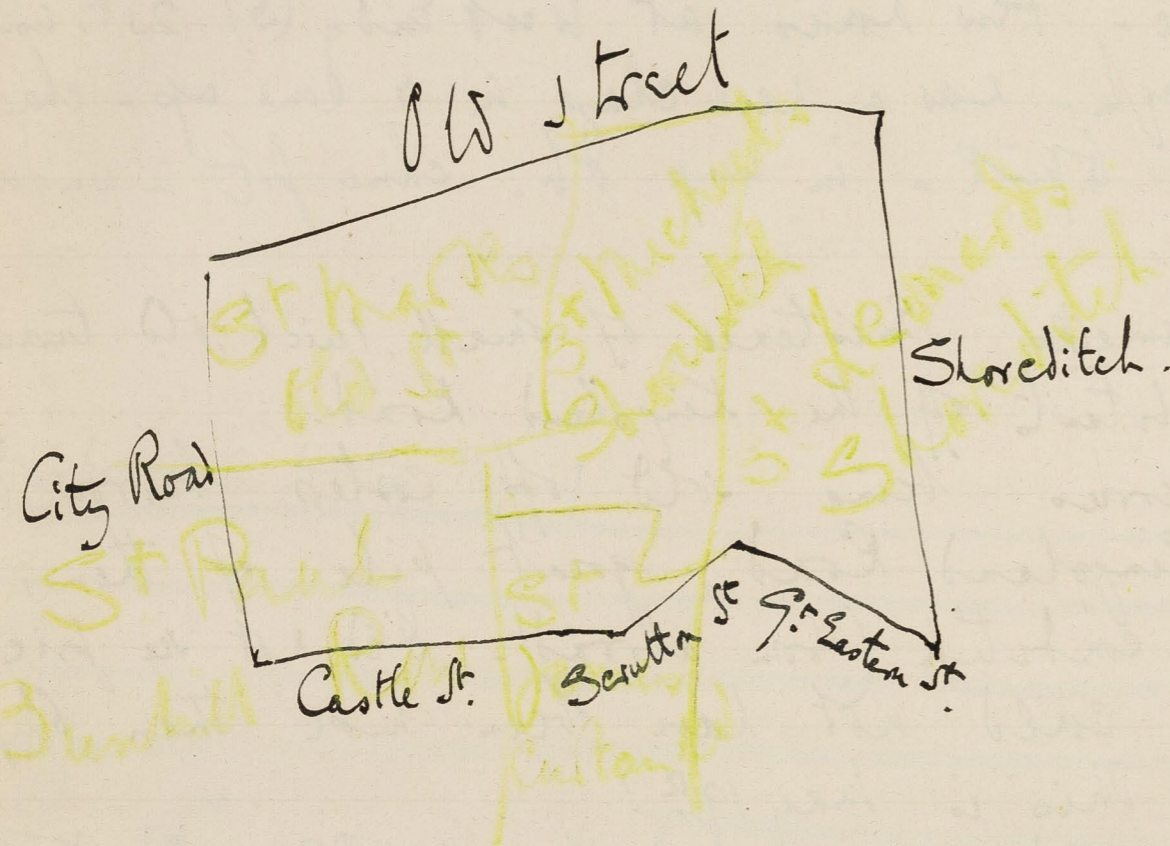 Old Street
St Marks
Old St
St Michael
Shoreditch
St Leonards
Shoreditch
Shoreditch.
City Road
St Paul
Bunhill Row
St James
Curtain Rd
Castle St.
Scrutton St
Gt. Eastern St.